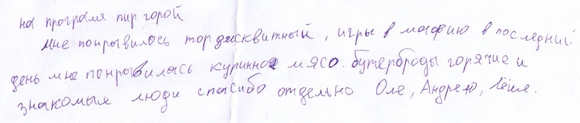 на програмя пир горой
Мне понрывилось тордисквитный, игры в мафию в последний
день мне понровилась куринное мясо. бутерброды горячие и
знакомыя люди спасибо отдельно Оле, Андрею,